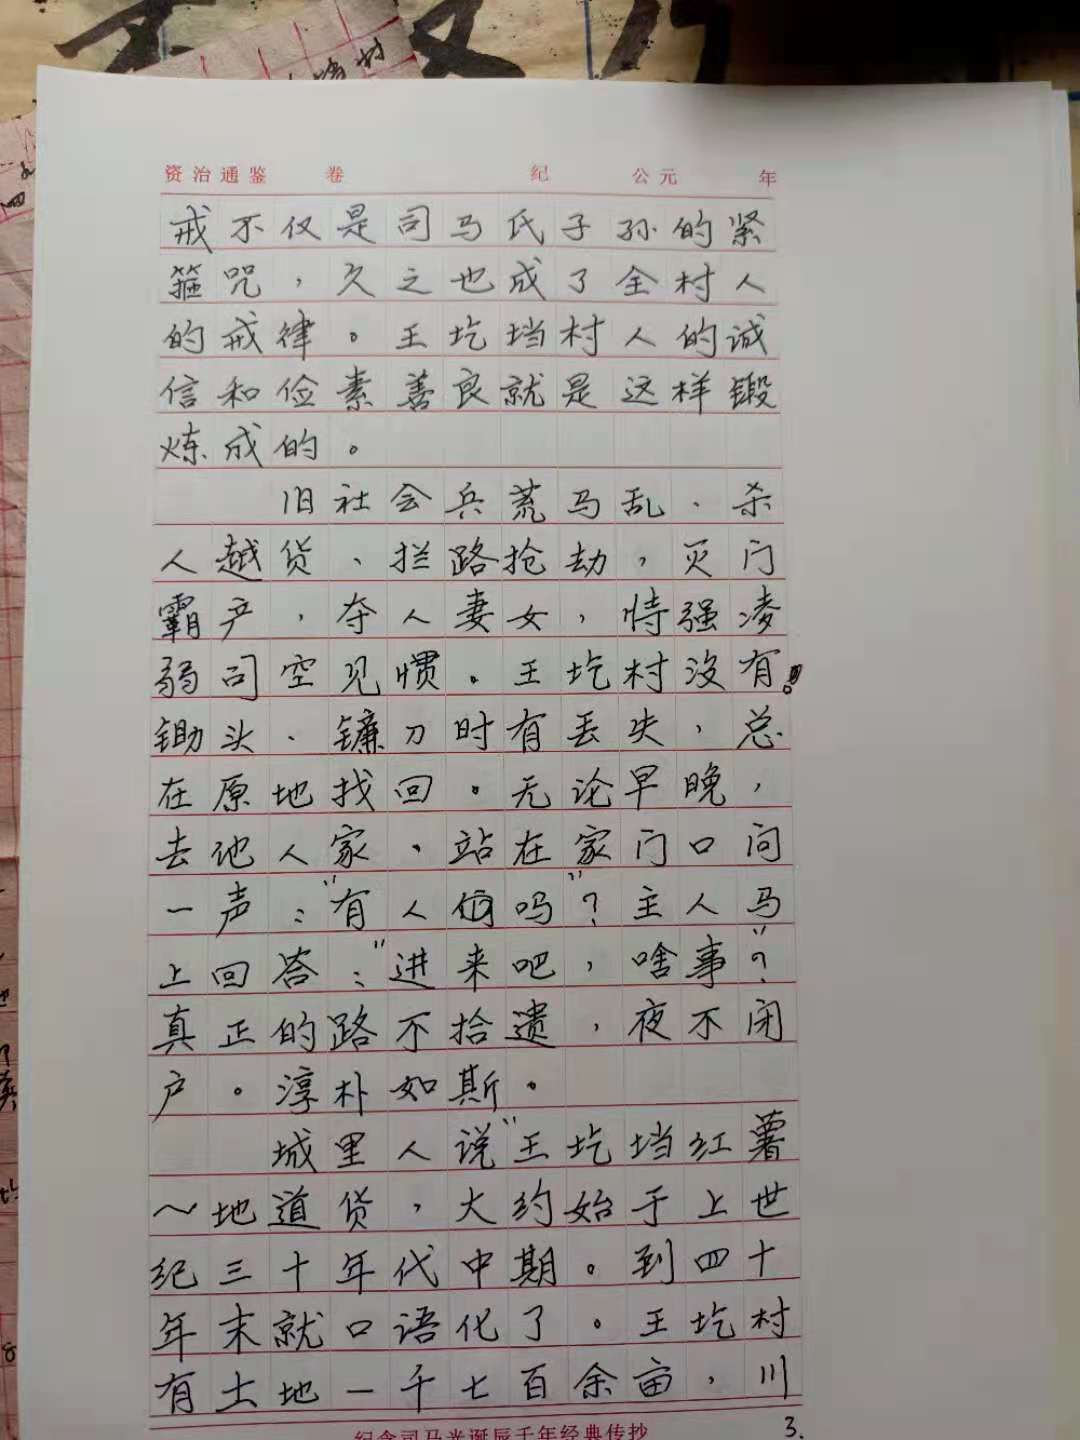 资治通鉴 卷 纪 公元 年
戒不仅是司马氏子孙的紧
箍咒，久之也成了全村人
的戒律。王圪垱村人的诚
信和俭素善良就是这样锻
炼成的。
旧社会兵荒马乱、杀
人越货、拦路抢劫，灭门
霸产，夺人妻女，恃强凌
弱司空见惯。王圪村没有。
锄头、镰刀时有丢失，总
在原地找回。无论早晚，
去他人家，站在家门口问
一声：“有人吗”？主人马
上回答：“进来吧，啥事”？
真正的路不拾遗，夜不闭
户。淳朴如斯。
城里人说“王圪垱红薯
～地道货，大约始于上世
纪三十年代中期。到四十
年末就口语化了。王圪村
有土地一千七百余亩，川
纪念司马光诞辰千年经典传抄
3.